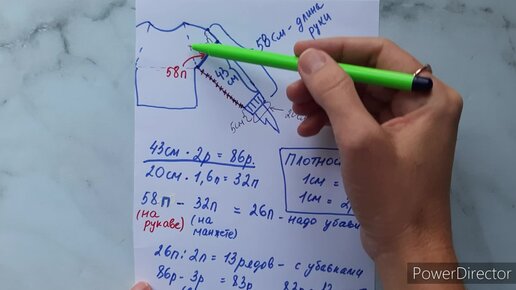 58см - длина
руки
58п
43
см
5см
43см · 2р = 86р.
20см · 1,6п = 32п
Плотнос
1см =
1см = 2р
58п - 32п = 26п - надо убави
(на рукаве) (на манжете)
26п : 2п = 13 рядов - с убавками
86р - 3р = 83р
PowerDirector